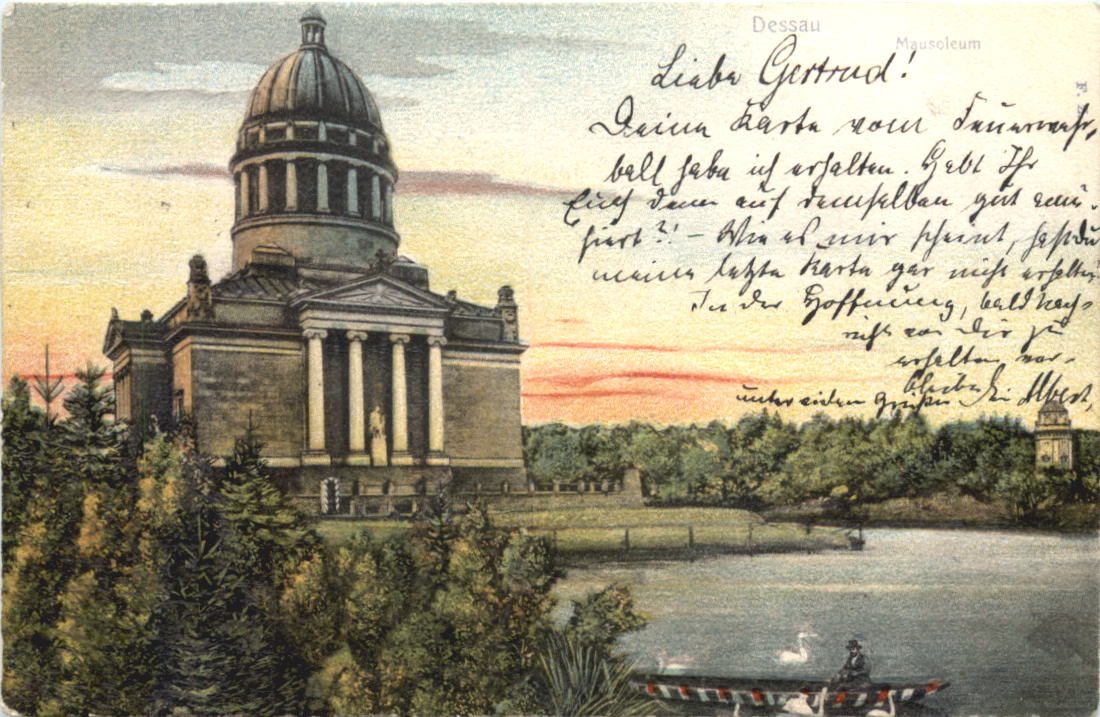 Dessau
Mausoleum
Liebe Gertrud!
Deine Karte vom Feuerwehr-
ball habe ich erhalten. Habt Ihr
Euch denn auf demselben gut amü-
siert?! – Wie es mir scheint, hast du
meine letzte Karte gar nicht erhalten
In der Hoffnung, bald Nach-
richt von Dir zu
erhalten ver-
bleibe Dein Albert,
unter Grüßen